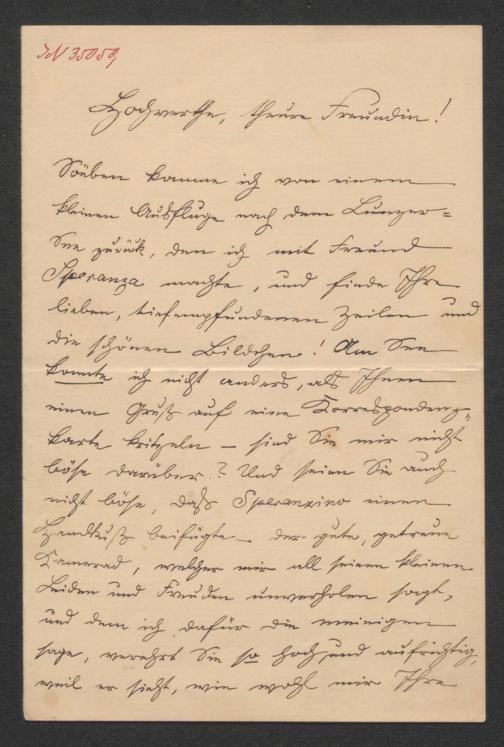 IN 35059
Hochwerthe, theure Freundin!
Soeben komme ich von einem
kleinen Ausfluge nach dem Lunzer=
See zurück, den ich mit Freund
Speranza machte, und finde Ihre
lieben, tiefempfundenen Zeilen und
die schönen Bildchen! Am See
konnte ich nicht anders, als Ihnen
einen Gruß auf eine Korrespondenz=
karte kritzeln – sind Sie mir nicht
böse darüber? Und seien Sie auch
nicht böse, daß Speranzino einen
Handkuß beifügte – der gute, getreue
Kamerad, welcher mir all seinen kleinen
Leiden und Freuden unverholen sagt,
und dem ich dafür die meinigen
sage, verehrt Sie so hoch und aufrichtig,
weil er sieht, wie wohl mir Ihre